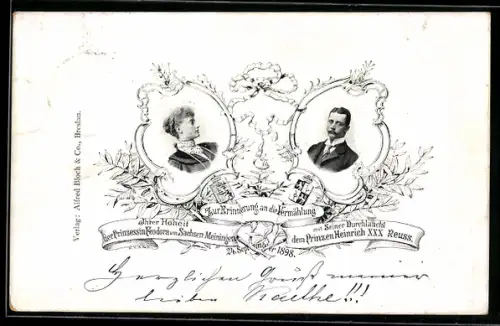 Verlag: Alfred Bloch & Co., Breslau.
Zur Erinnerung an die Vermählung
Ihrer Hoheit
der Prinzessin Feodora von Sachsen Meiningen
mit Seiner Durchlaucht
dem Prinzen Heinrich XXX Reuss.
24. September 1898.
Herzlichen Gruß meiner
lieben Kaethe!!!